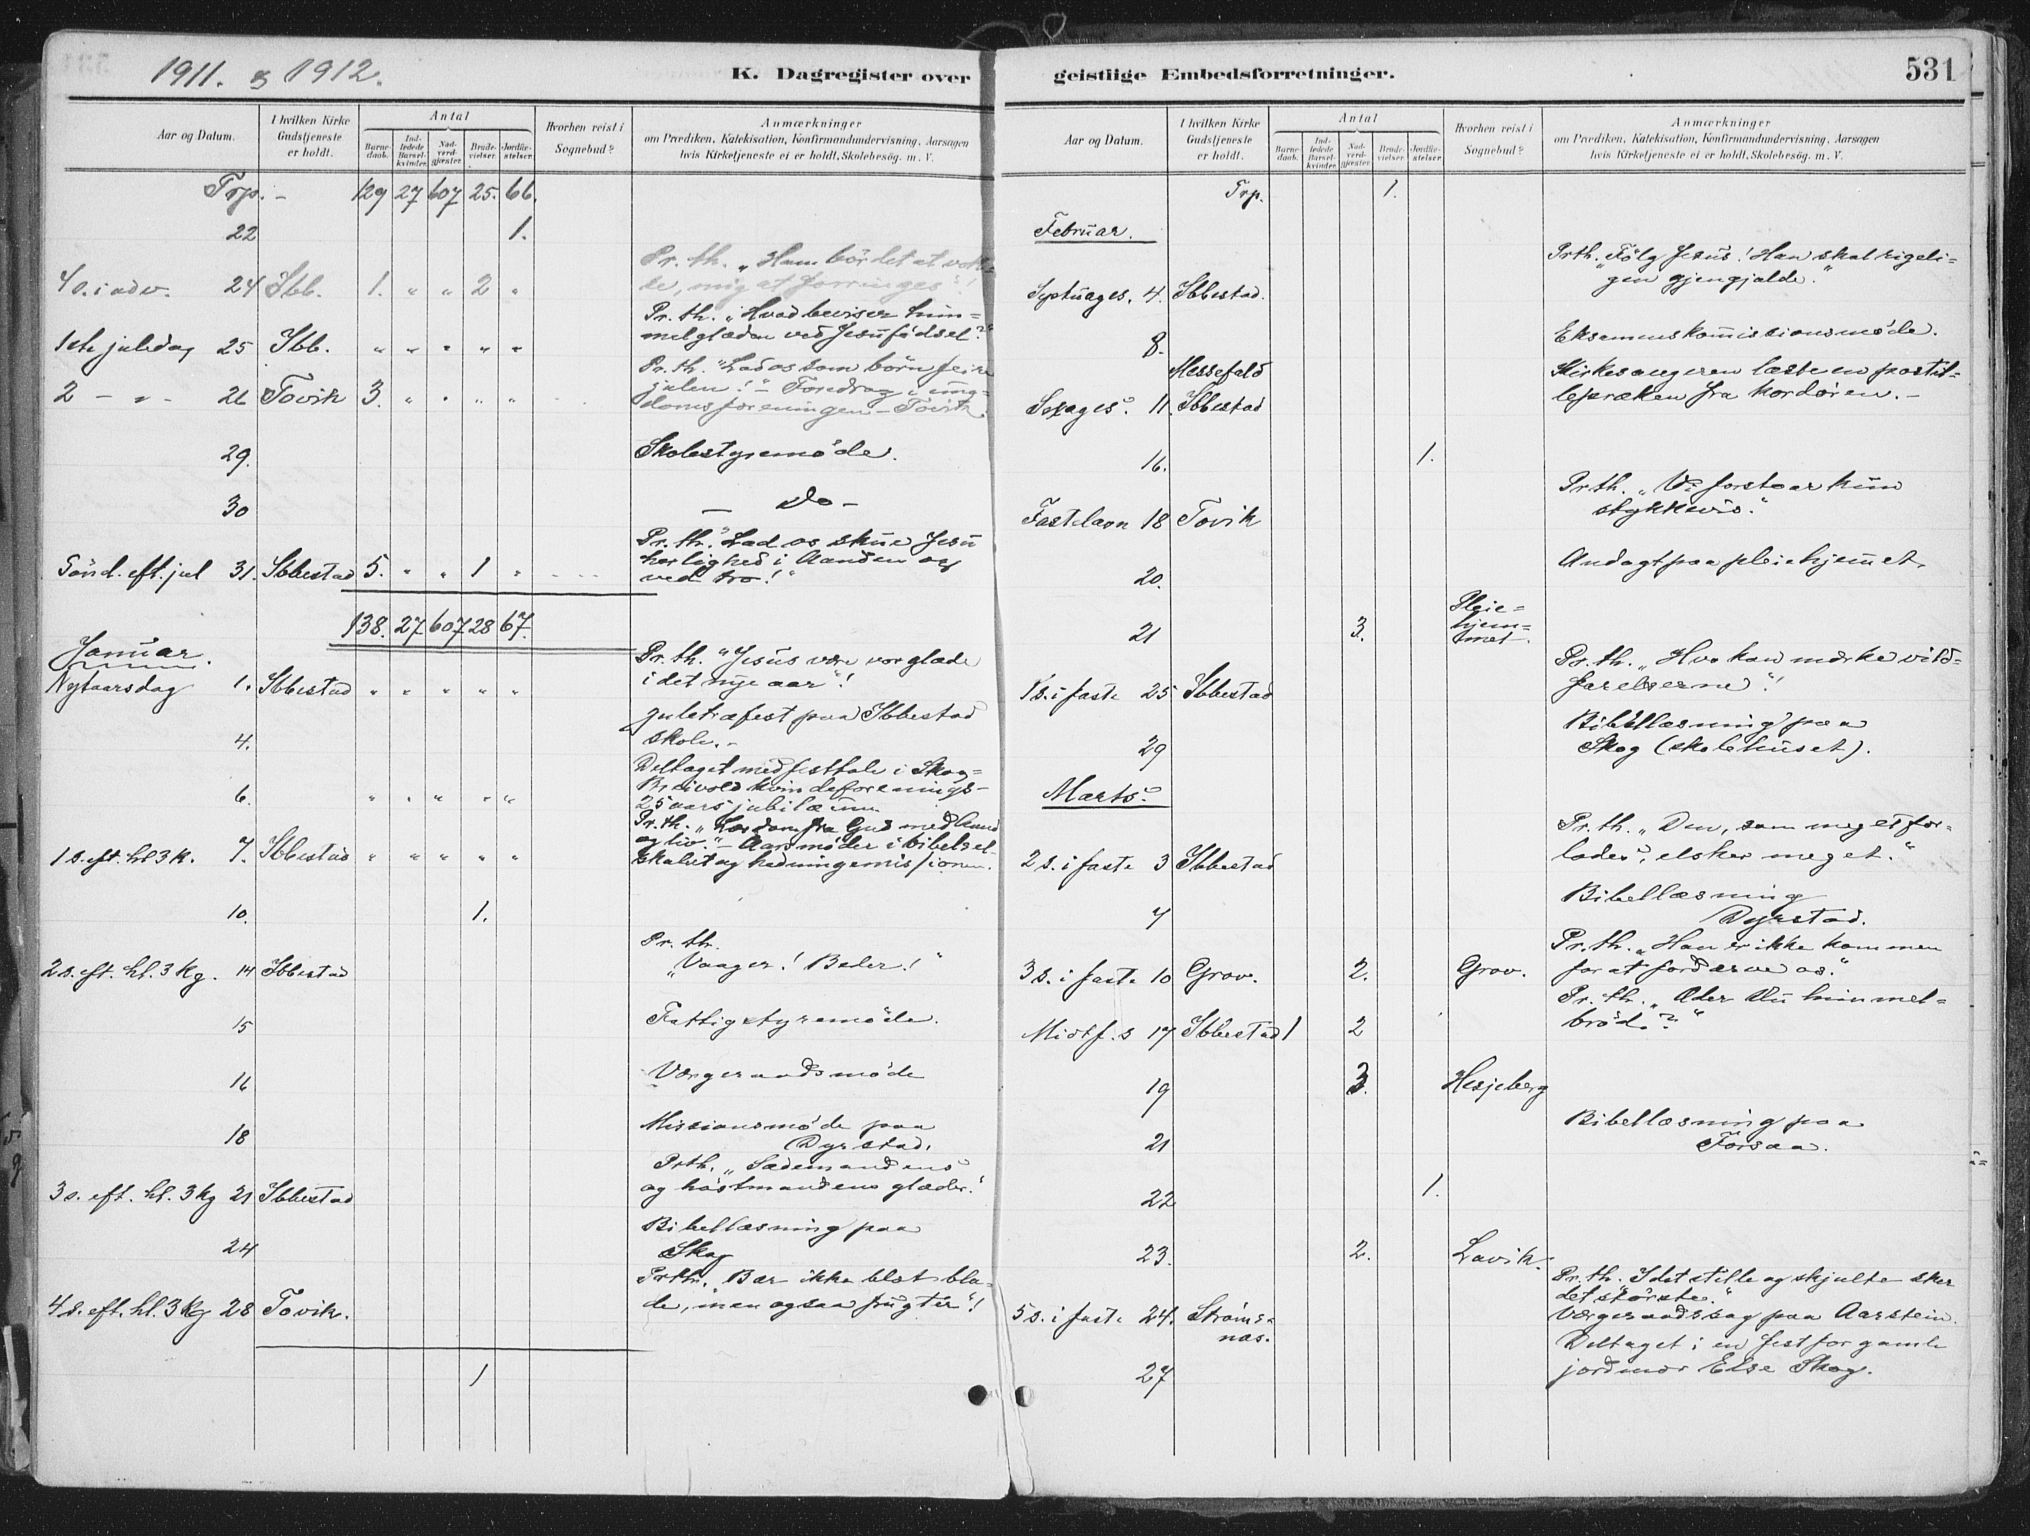 1911. & 1912.
K. Dagregister over
Aar og Datum.
I hvilken Kirke Gudstjeneste er holdt.
Antal
Barne-daab.
Ind-ledede Barsel-kvinder.
Nad-verd-gjester.
Brude-vielser.
Jordfæ-stelser.
Hvorhen reist i Sognebud?
Anmærkninger
om Prædiken, Katekisation, Konfirmandundervisning, Aarsagen
hvis Kirketjeneste ei er holdt, Skolebesøg. m. V.
Trp. - 129 27 607 25. 66.
22 1.
4 s. i adv. 24 Ibb. 1. " " 2 " Pr. th. "Ham bör det at vok-
se, mig at forringes"!
1ste juledag 25 Ibb. " " " " " Pr. th. "Hvad beviser him-
melglæden ved Jesu födsel?"
2 - " - 26 Tovik 3. " " " " Pr. th. "Lad os som börn feire
julen!" - Foredrag i ung-
domsforeningen - Tovik.
29. Skolestyremøde.
30 - do -
Sönd. eft. jul 31. Ibbestad 5. " " 1 " Pr. th. "Lad os skue Jesu
herlighed i Aanden og
ved tro!"
138. 27 607 28 67.
Januar.
Nytaarsdag 1. Ibbestad " " " " " Pr. th. "Jesus være vor glæde
i det nye aar"!
4. Juletræfest paa Ibbestad
skole. -
6. " " " " " Deltaget med festtale i Skog-
Breivold kvindeforenings-
25 aars jubilæum.
1 s. eft. hl 3 k. 7. Ibbestad " " " " " Pr. th. "Lærdom fra Gud med haand
og liv." - Aarsmöder i bibelsel-
skabet og hedningemissionen.
10. 1.
2 s. eft. hl. 3 kg. 14 Ibbestad Pr. th.
"Vaager! Beder!"
15 Fattigstyremøde.
16 Værgeraadsmøde
18 Missionsmøde paa
Dyrstad.
3 s. eft. hl. 3 kg 21 Ibbestad Prth. "Sædemandens
og høstmandens glæder."
24 Bibellæsning paa
Skog
4 s. eft. hl. 3 kg 28 Tovik. Prth. "Bær ikke blot bla-
de, men ogsaa frugter"!
1
geistlige Embedsforretninger.
531
Aar og Datum.
I hvilken Kirke Gudstjeneste er holdt.
Antal
Barne-daab.
Ind-ledede Barsel-kvinder.
Nad-verd-gjester.
Brude-vielser.
Jordfæ-stelser.
Hvorhen reist i Sognebud?
Anmærkninger
om Prædiken, Katekisation, Konfirmandundervisning, Aarsagen
hvis Kirketjeneste ei er holdt, Skolebesøg. m. V.
Trp. 1.
Februar.
Septuages. 4. Ibbestad. Prth. "Følg Jesus! Han skal rigeli-
gen gjengjælde."
8. Eksamenskommissionsmøde.
Messefald
Sexages. 11. Ibbestad Kirkesangeren læste en postil-
lepræken fra kordøren. -
16. 1.
Fastelavn 18 Tovik Prth. "Vi forstaar kun
stykkevis."
20. Andagt paa pleiehjemmet.
21 3. Pleie-
hjem-
met.
1 s. i faste 25 Ibbestad Pr. th. "Hvo kan mærke vild-
farelserne"!
29 Bibellæsning paa
Skog (skolehuset).
Marts.
2 s. i faste 3 Ibbestad Pr. th. "Den, som meget for-
lades, elsker meget."
7 Bibellæsning
Dyrstad.
3 s. i faste 10 Grov. 2. Grov. Pr. th. "Han er ikke kommen
for at fordærve os."
Midtf. s 17 Ibbestad 1 2 Pr. th. "Æder Du himmel-
brød?"
19 3. Hesjeberg
21 Bibellæsning paa
Forsaa.
22 1.
23. 2. Lavik.
5 s. i faste 24. Strøms-
næs. Pr. th. "I det stille og skjulte sker
det største."
Værgeraadssag paa Aarstein.
27 Deltaget i en fest for gamle
jordmor Else Skog.